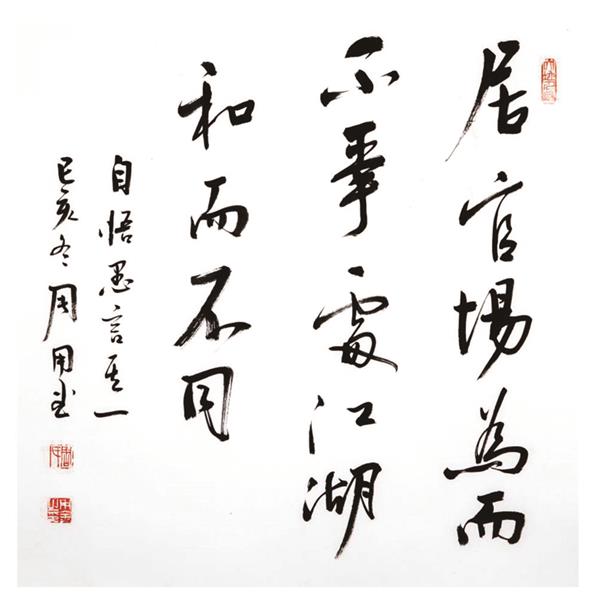 居官場為而
不爭處江湖
和而不同
自悟愚言其一
己亥冬周用